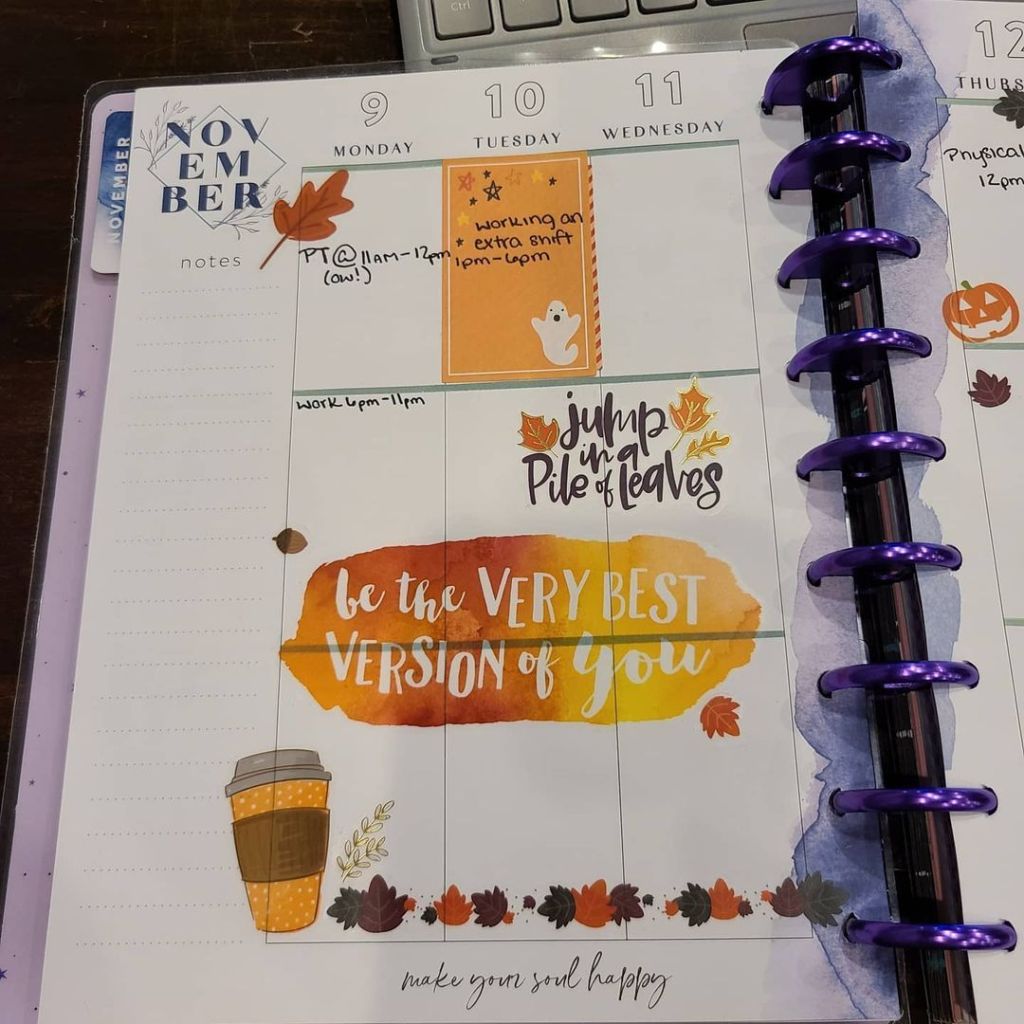 Ctrl
NOVEMBER
NOV
EM
BER
notes
9
MONDAY
10
TUESDAY
11
WEDNESDAY
PT @ 11am-12pm
(ow!)
working an
extra shift
1pm-6pm
work 6pm-11pm
jump
in a
Pile of leaves
be the VERY BEST
VERSION of you
make your soul happy
12
THURS
Physical
12pm